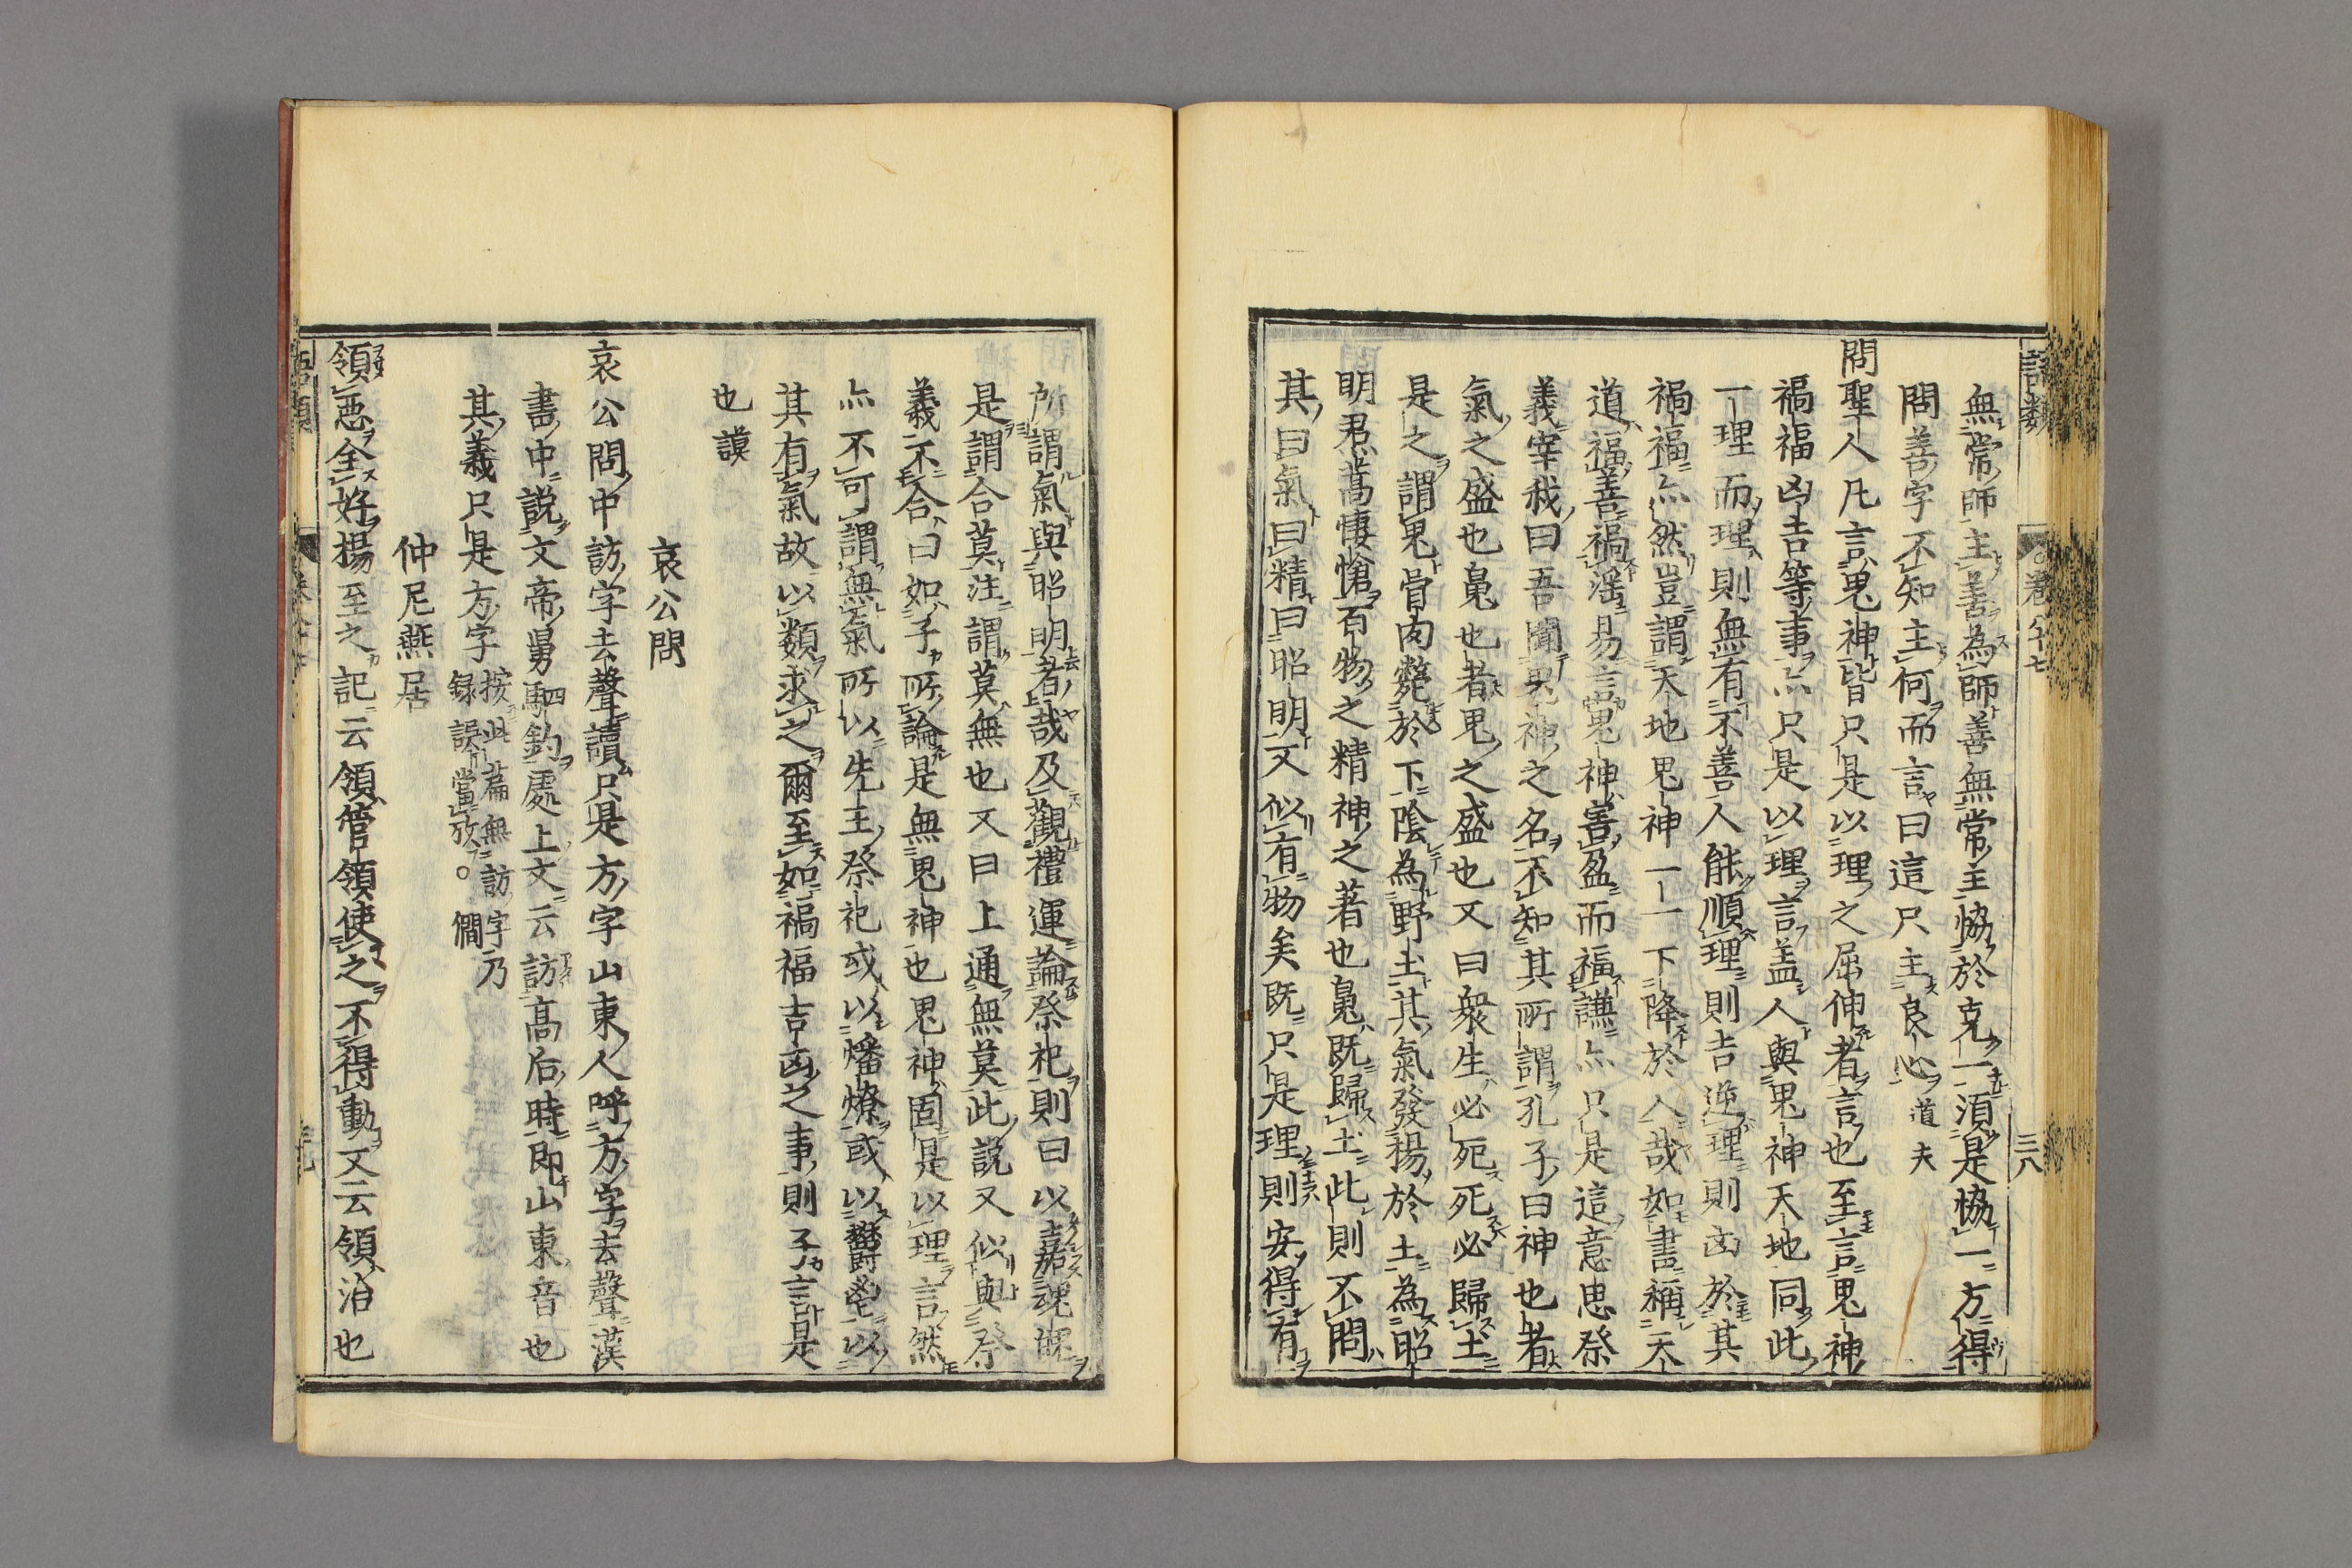 語類
卷八十七
三八
無常師主善為師善無常主協於克一須是協一方得
問善字不知主何而言曰這只主良心道夫
問聖人凡言鬼神皆只是以理之屈伸者言也至言鬼神
禍福凶吉等事亦只是以理言盖人與鬼神天地同此
一理而理則無有不善人能順理則吉逆理則凶於其
禍福亦然豈謂天地鬼神一一下降於人哉如書稱天
道福善禍淫易言鬼神害盈而福謙亦只是這意思祭
義宰我曰吾聞鬼神之名不知其所謂孔子曰神也者
氣之盛也鬼也者鬼之盛也又曰衆生必死死必歸土
是之謂鬼骨肉斃於下陰為野土其氣發揚於上為昭
明君蒿悽愴百物之精神之著也鬼既歸土此則不問
其曰氣曰精曰昭明又似有物矣既只是理則安得有
所謂氣與昭明者哉及觀禮運論祭祀則曰以嘉魂魄
是謂合莫注謂莫無也又曰上通無莫此説又似與祭
義不合曰如子所論是無鬼神也鬼神固是以理言然
亦不可謂無氣所以先王祭祀或以燔燎或以鬱鬯以
其有氣故以類求之爾至如禍福吉凶之事則子言是
也謨
哀公問
哀公問中訪字去聲讀只是方字山東人呼方字去聲漢
書中説文帝舅駟鈞處上文云訪高后時即山東音也
其義只是方字按此篇無訪字乃
録誤當攷。僩
仲尼燕居
領惡全好揚至之記云領管領使之不得動又云領治也
語類